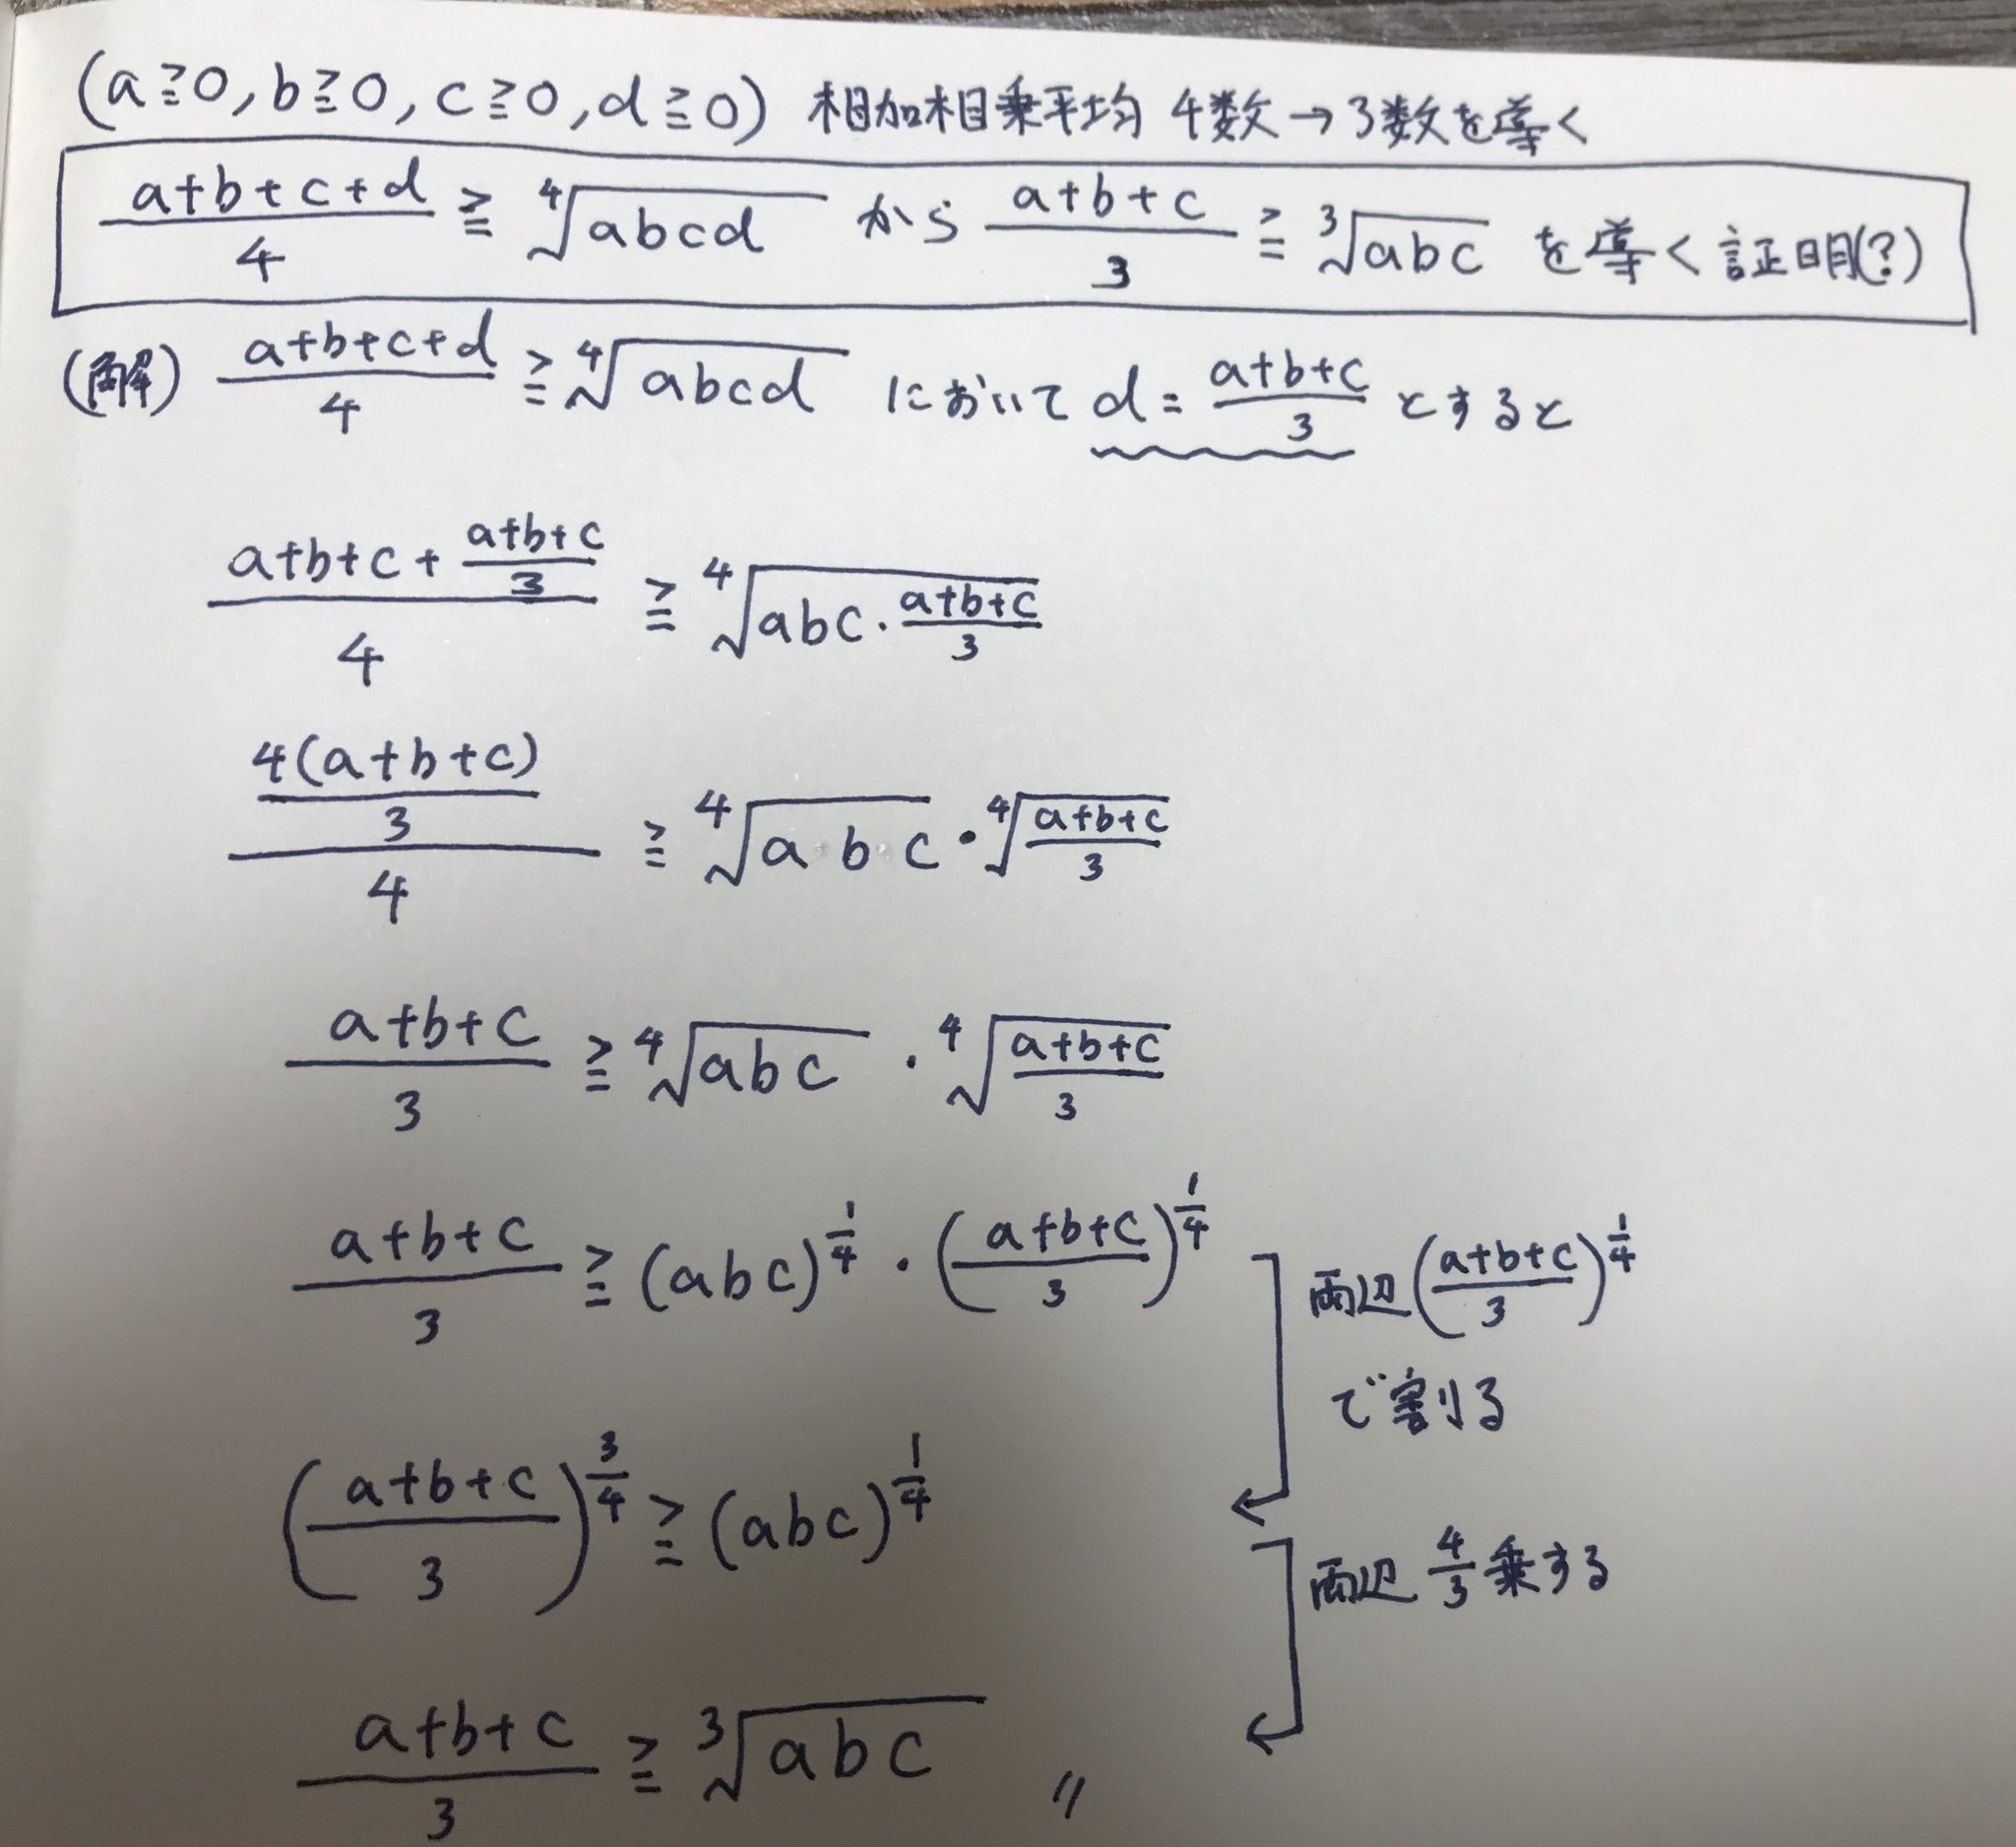 (a≧0, b≧0, c≧0, d≧0) 相加相乗平均 4数→3数を導く
(a+b+c+d)/4 ≧ ⁴√(abcd) から (a+b+c)/3 ≧ ³√(abc) を導く証明(?)
(解) (a+b+c+d)/4 ≧ ⁴√(abcd) において d = (a+b+c)/3 とすると
(a+b+c + (a+b+c)/3)/4 ≧ ⁴√(abc・(a+b+c)/3)
(4(a+b+c)/3)/4 ≧ ⁴√(a b c)・⁴√((a+b+c)/3)
(a+b+c)/3 ≧ ⁴√(abc) ・ ⁴√((a+b+c)/3)
(a+b+c)/3 ≧ (abc)^(1/4) ・ ((a+b+c)/3)^(1/4)
両辺((a+b+c)/3)^(1/4)
で割る
((a+b+c)/3)^(3/4) ≧ (abc)^(1/4)
両辺 4/3 乗する
(a+b+c)/3 ≧ ³√(abc) 〃